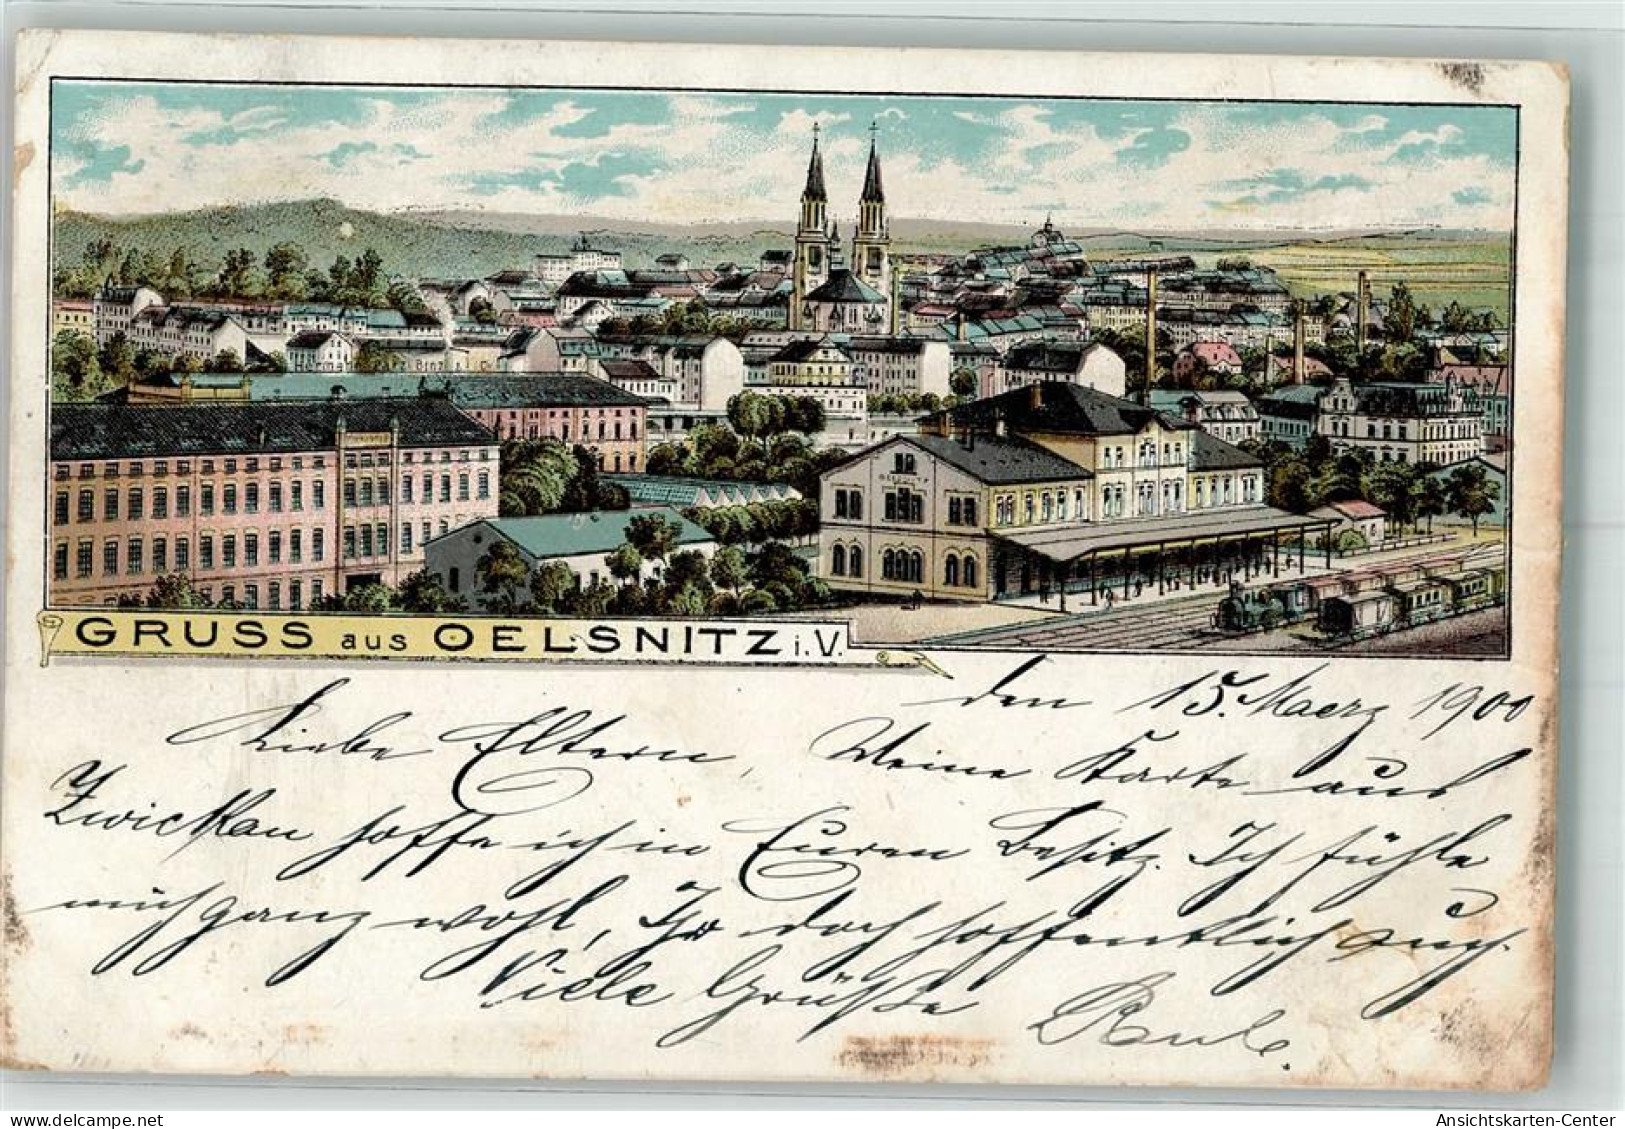 OELSNITZ
GRUSS aus OELSNITZ i. V.
den 15. Maerz 1900
Liebe Eltern, Meine Karte aus
Zwickau hoffe ich in Euren Besitz. Ich fühle
mich ganz wohl, Ihr doch hoffentlich auch.
Viele Grüße Paul.
Ansichtskarten-Center